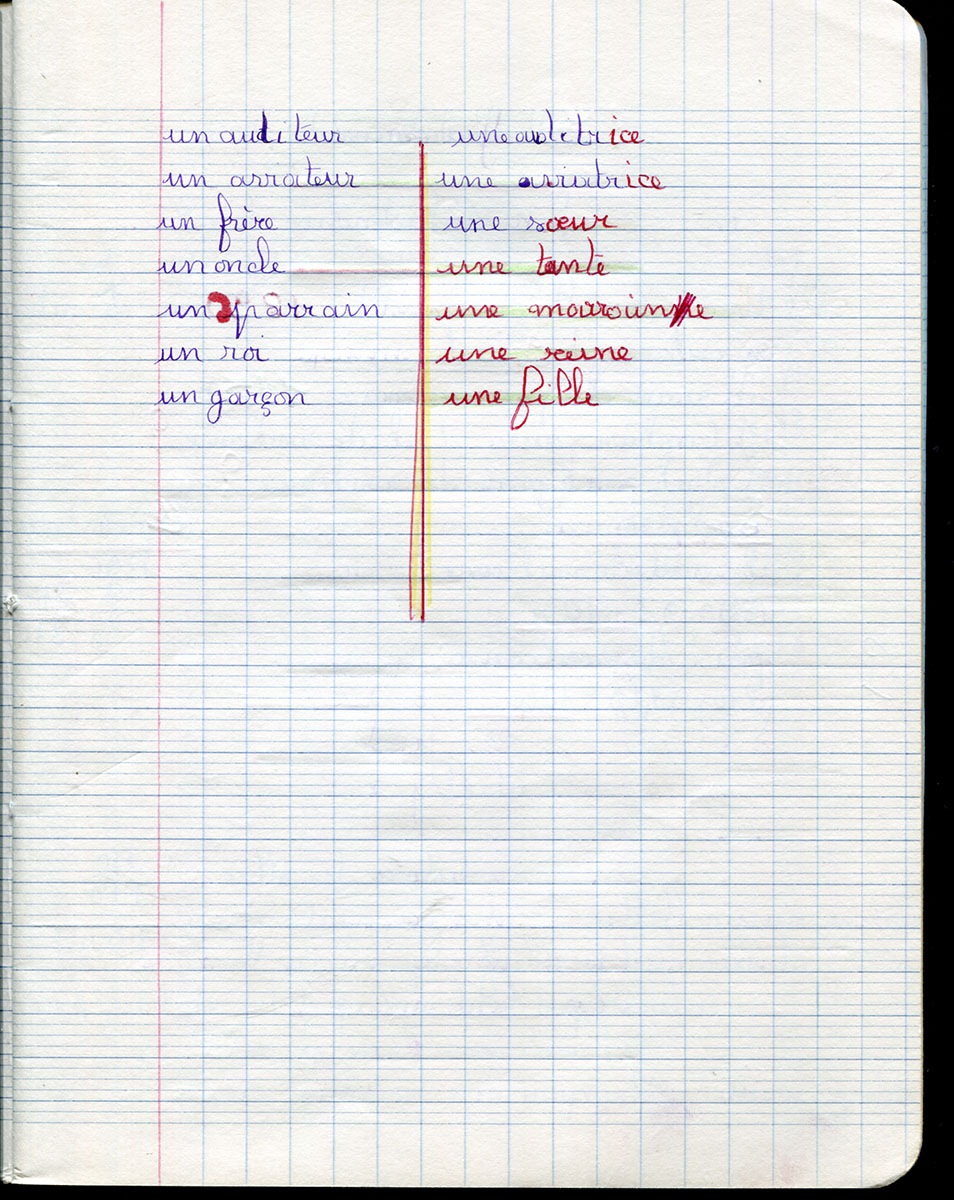 un auditeur une auditrice
un aviateur une aviatrice
un frère une sœur
un oncle une tante
un parrain une marraine
un roi une reine
un garçon une fille